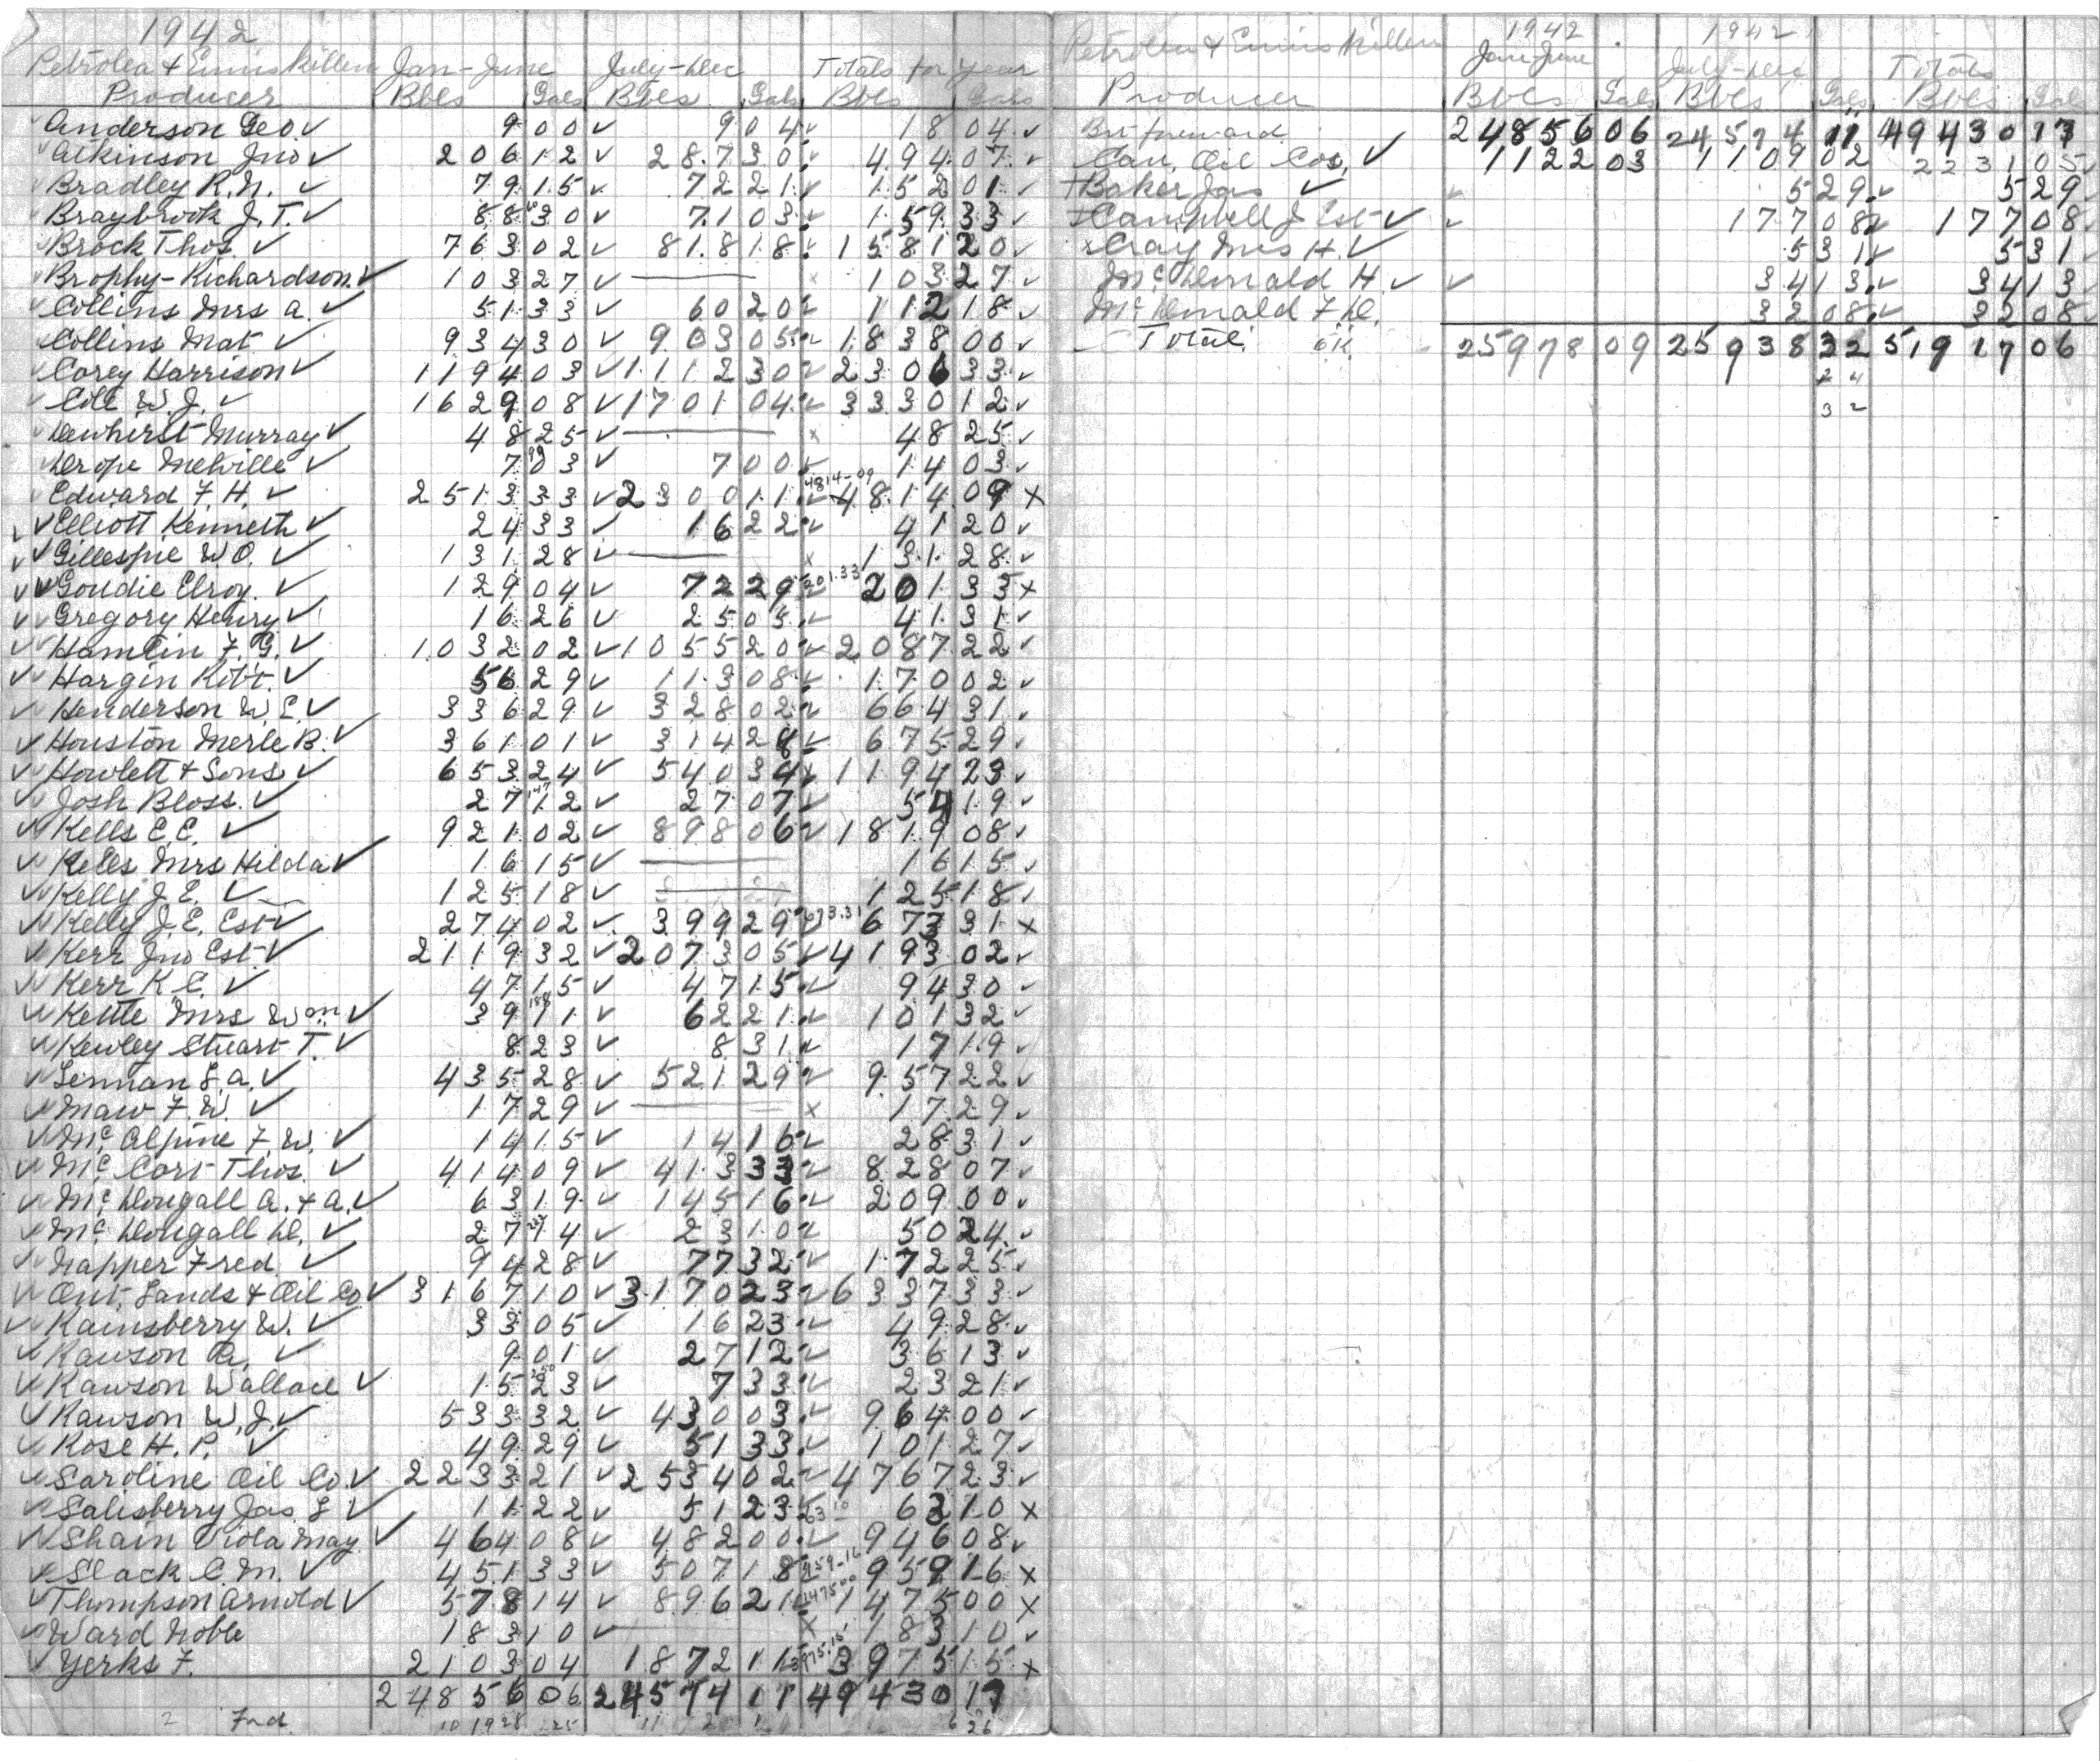 1942
Petrolea & Enniskillen Jan-June July-Dec Totals for Year
Producer Bbls Gals Bbls Gals Bbls Gals
Anderson Geo 9 00 9 04 18 04
Atkinson Jno 206 12 287 30 494 07
Bradley R.N. 79 15 72 21 152 01
Braybrook J.T. 88 30 71 03 159 33
Brock Thos 763 02 818 18 1581 20
Brophy-Richardson 103 27 — 103 27
Collins Mrs A. 51 33 60 20 112 18
Collins Mat 934 30 903 05 1838 00
Corey Harrison 1194 03 1112 30 2306 33
Cott W.J. 1629 08 1701 04 3330 12
Dewhirst Murray 48 25 — 48 25
Drope Melville 7 03 7 00 14 03
Edward F.H. 2513 33 2300 11 4814-09 4814 09 x
Elliott Kenneth 24 33 16 22 41 20
Gillespie W.O. 131 28 — 131 28
Goudie Elroy 129 04 72 29 201.33 201 33 x
Gregory Henry 16 26 25 05 41 31
Hamlin F.G. 1032 02 1055 20 2087 22
Hargin Robt. 56 29 113 08 170 02
Henderson W.E. 336 29 328 02 664 31
Houston Merle B. 361 01 314 28 675 29
Howlett & Sons 653 24 540 34 1194 23
Josh Bloss. 27 12 27 07 54 19
Kells E.E. 921 02 898 06 1819 08
Kells Mrs Hilda 16 15 — 16 15
Kelly J.E. 125 18 — 125 18
Kelly J.E. Est 274 02 399 29 673.31 673 31 x
Kerr Jno Est 2119 32 2073 05 4193 02
Kerr K.E. 47 15 47 15 94 30
Kettle Mrs Wm 39 11 62 21 101 32
Kewley Stuart T. 8 23 8 31 17 19
Lennan L.A. 435 28 521 29 957 22
Maw F.W. 17 29 — 17 29
McAlpine F.W. 14 15 14 16 28 31
McCort Thos. 414 09 413 33 828 07
McDougall A. & A. 63 19 145 16 209 00
McDougall D. 27 14 23 10 50 24
Napper Fred 94 28 77 32 172 25
Ont. Lands & Oil Co 3167 10 3170 23 6337 33
Rainsberry W. 33 05 16 23 49 28
Rawson A. 9 01 27 12 36 13
Rawson Wallace 15 23 7 33 23 21
Rawson W.J. 533 32 430 03 964 00
Rose H.P. 49 29 51 33 101 27
Saroline Oil Co. 2233 21 2534 02 4767 23
Salisberry Jas. L 11 22 51 23 63 10 x
Shain Viola May 464 08 482 00 946 08
Slack C.M. 451 33 507 18 959-16 959 16 x
Thompson Arnold 578 14 896 21 1475 00 1475 00 x
Ward Noble 183 10 — 183 10
Yerks F. 2103 04 1872 11 3975.15 3975 15 x
24856 06 24574 11 49430 17
Fwd.
Petrolea & Enniskillen 1942 Jan-June 1942 July-Dec Totals
Producer Bbls Gals Bbls Gals Bbls Gal
Brt forward 24856 06 24574 11 49430 17
Can. Oil Cos, 1122 03 1109 02 2231 05
Baker Jas 5 29 5 29
Campbell J Est 177 08 177 08
Cray Mrs H. 5 31 5 31
McDonald H. 34 13 34 13
McDonald F D. 32 08 32 08
Total. OK 25978 09 25938 32 51917 06
24
32